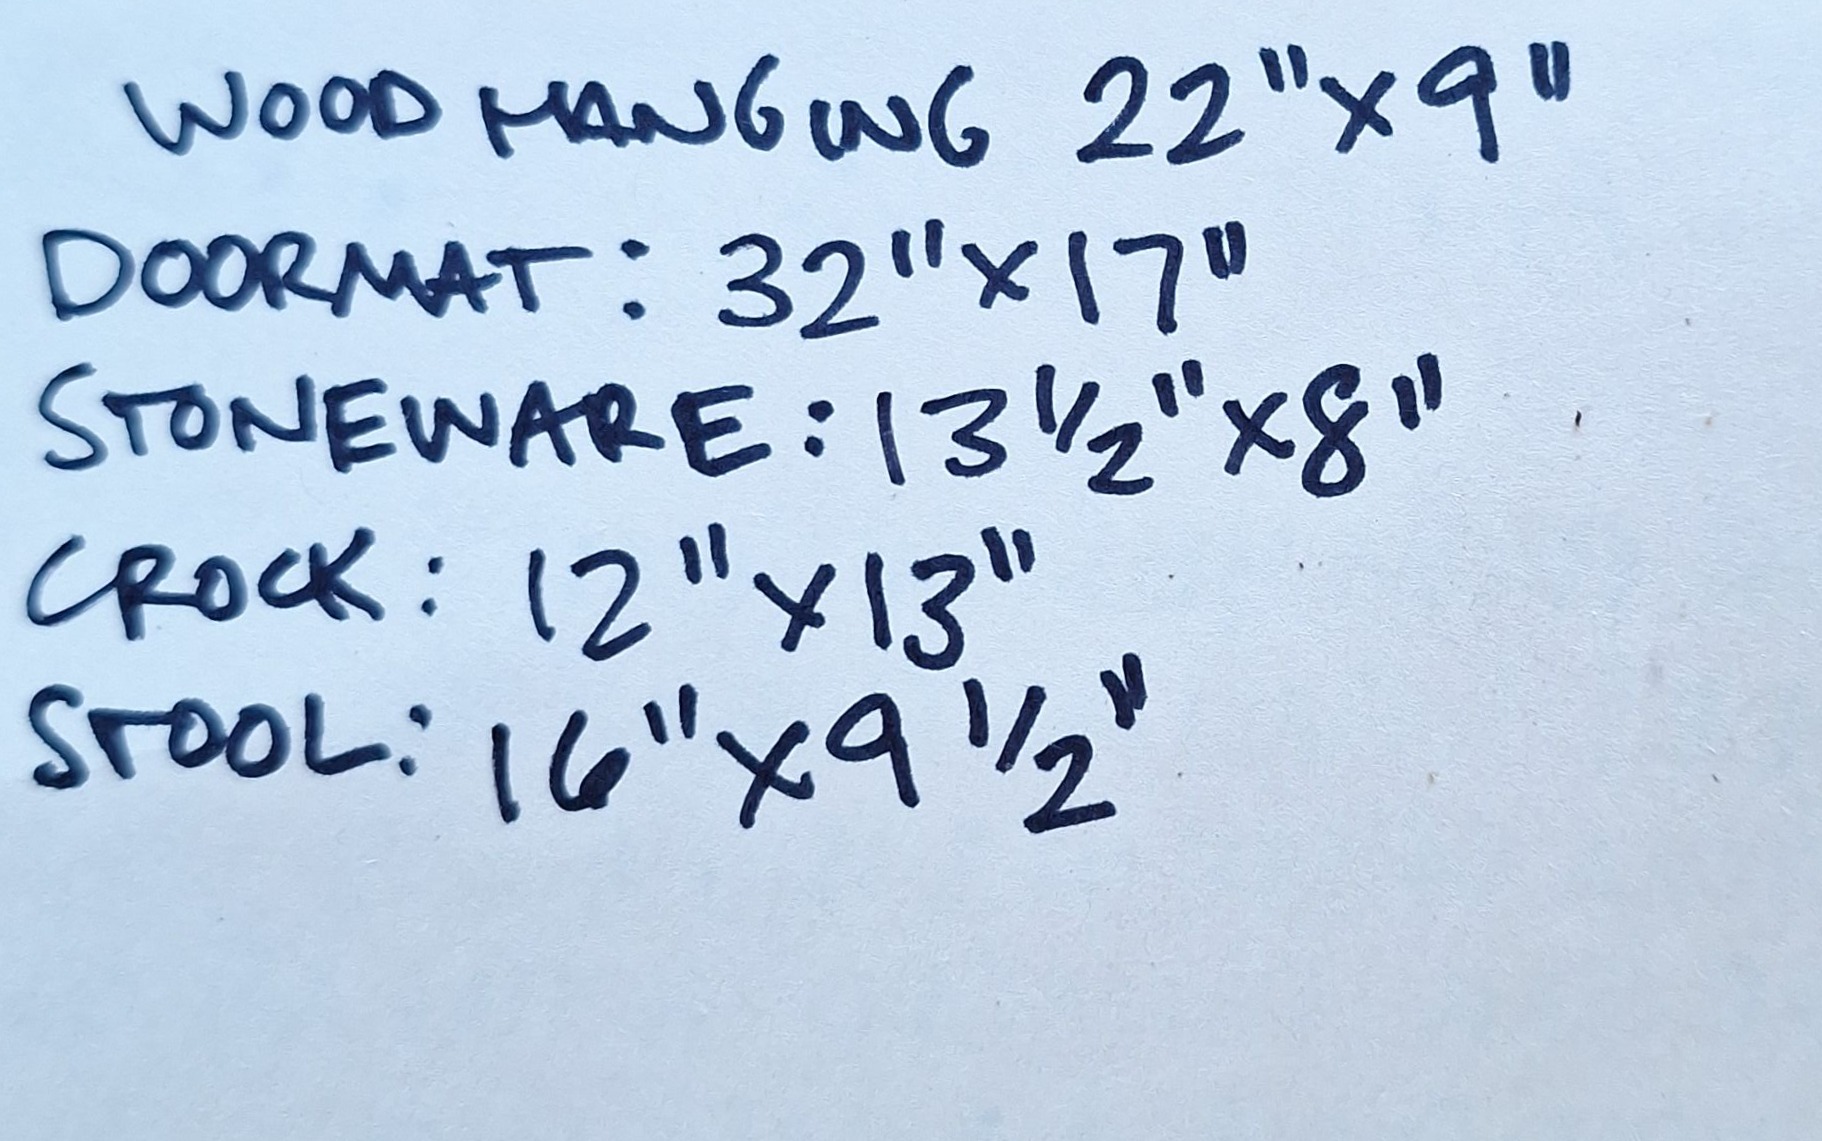 WOOD HANGING 22"x9"
DOORMAT: 32"x17"
STONEWARE: 13 1/2"x8"
CROCK: 12"x13"
STOOL: 16"x9 1/2"